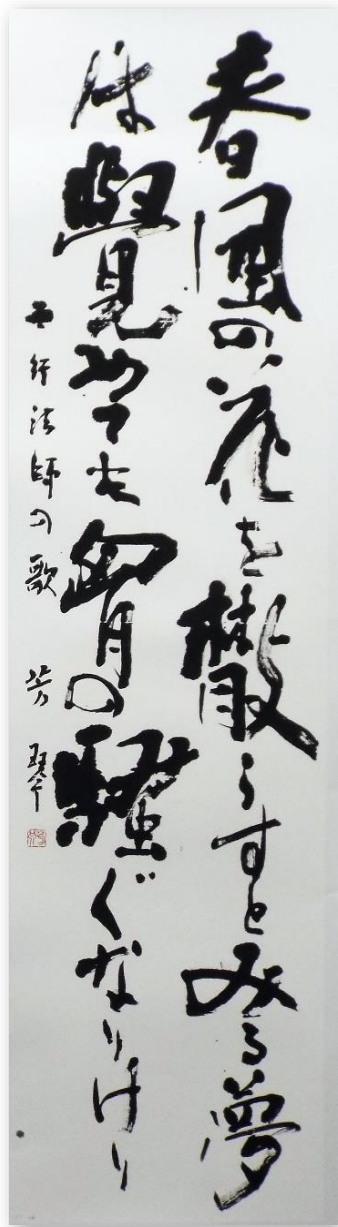 春風の花を散らすとみる夢
は覺めても胸の騒ぐなりけり
西行法師の歌 芳翠